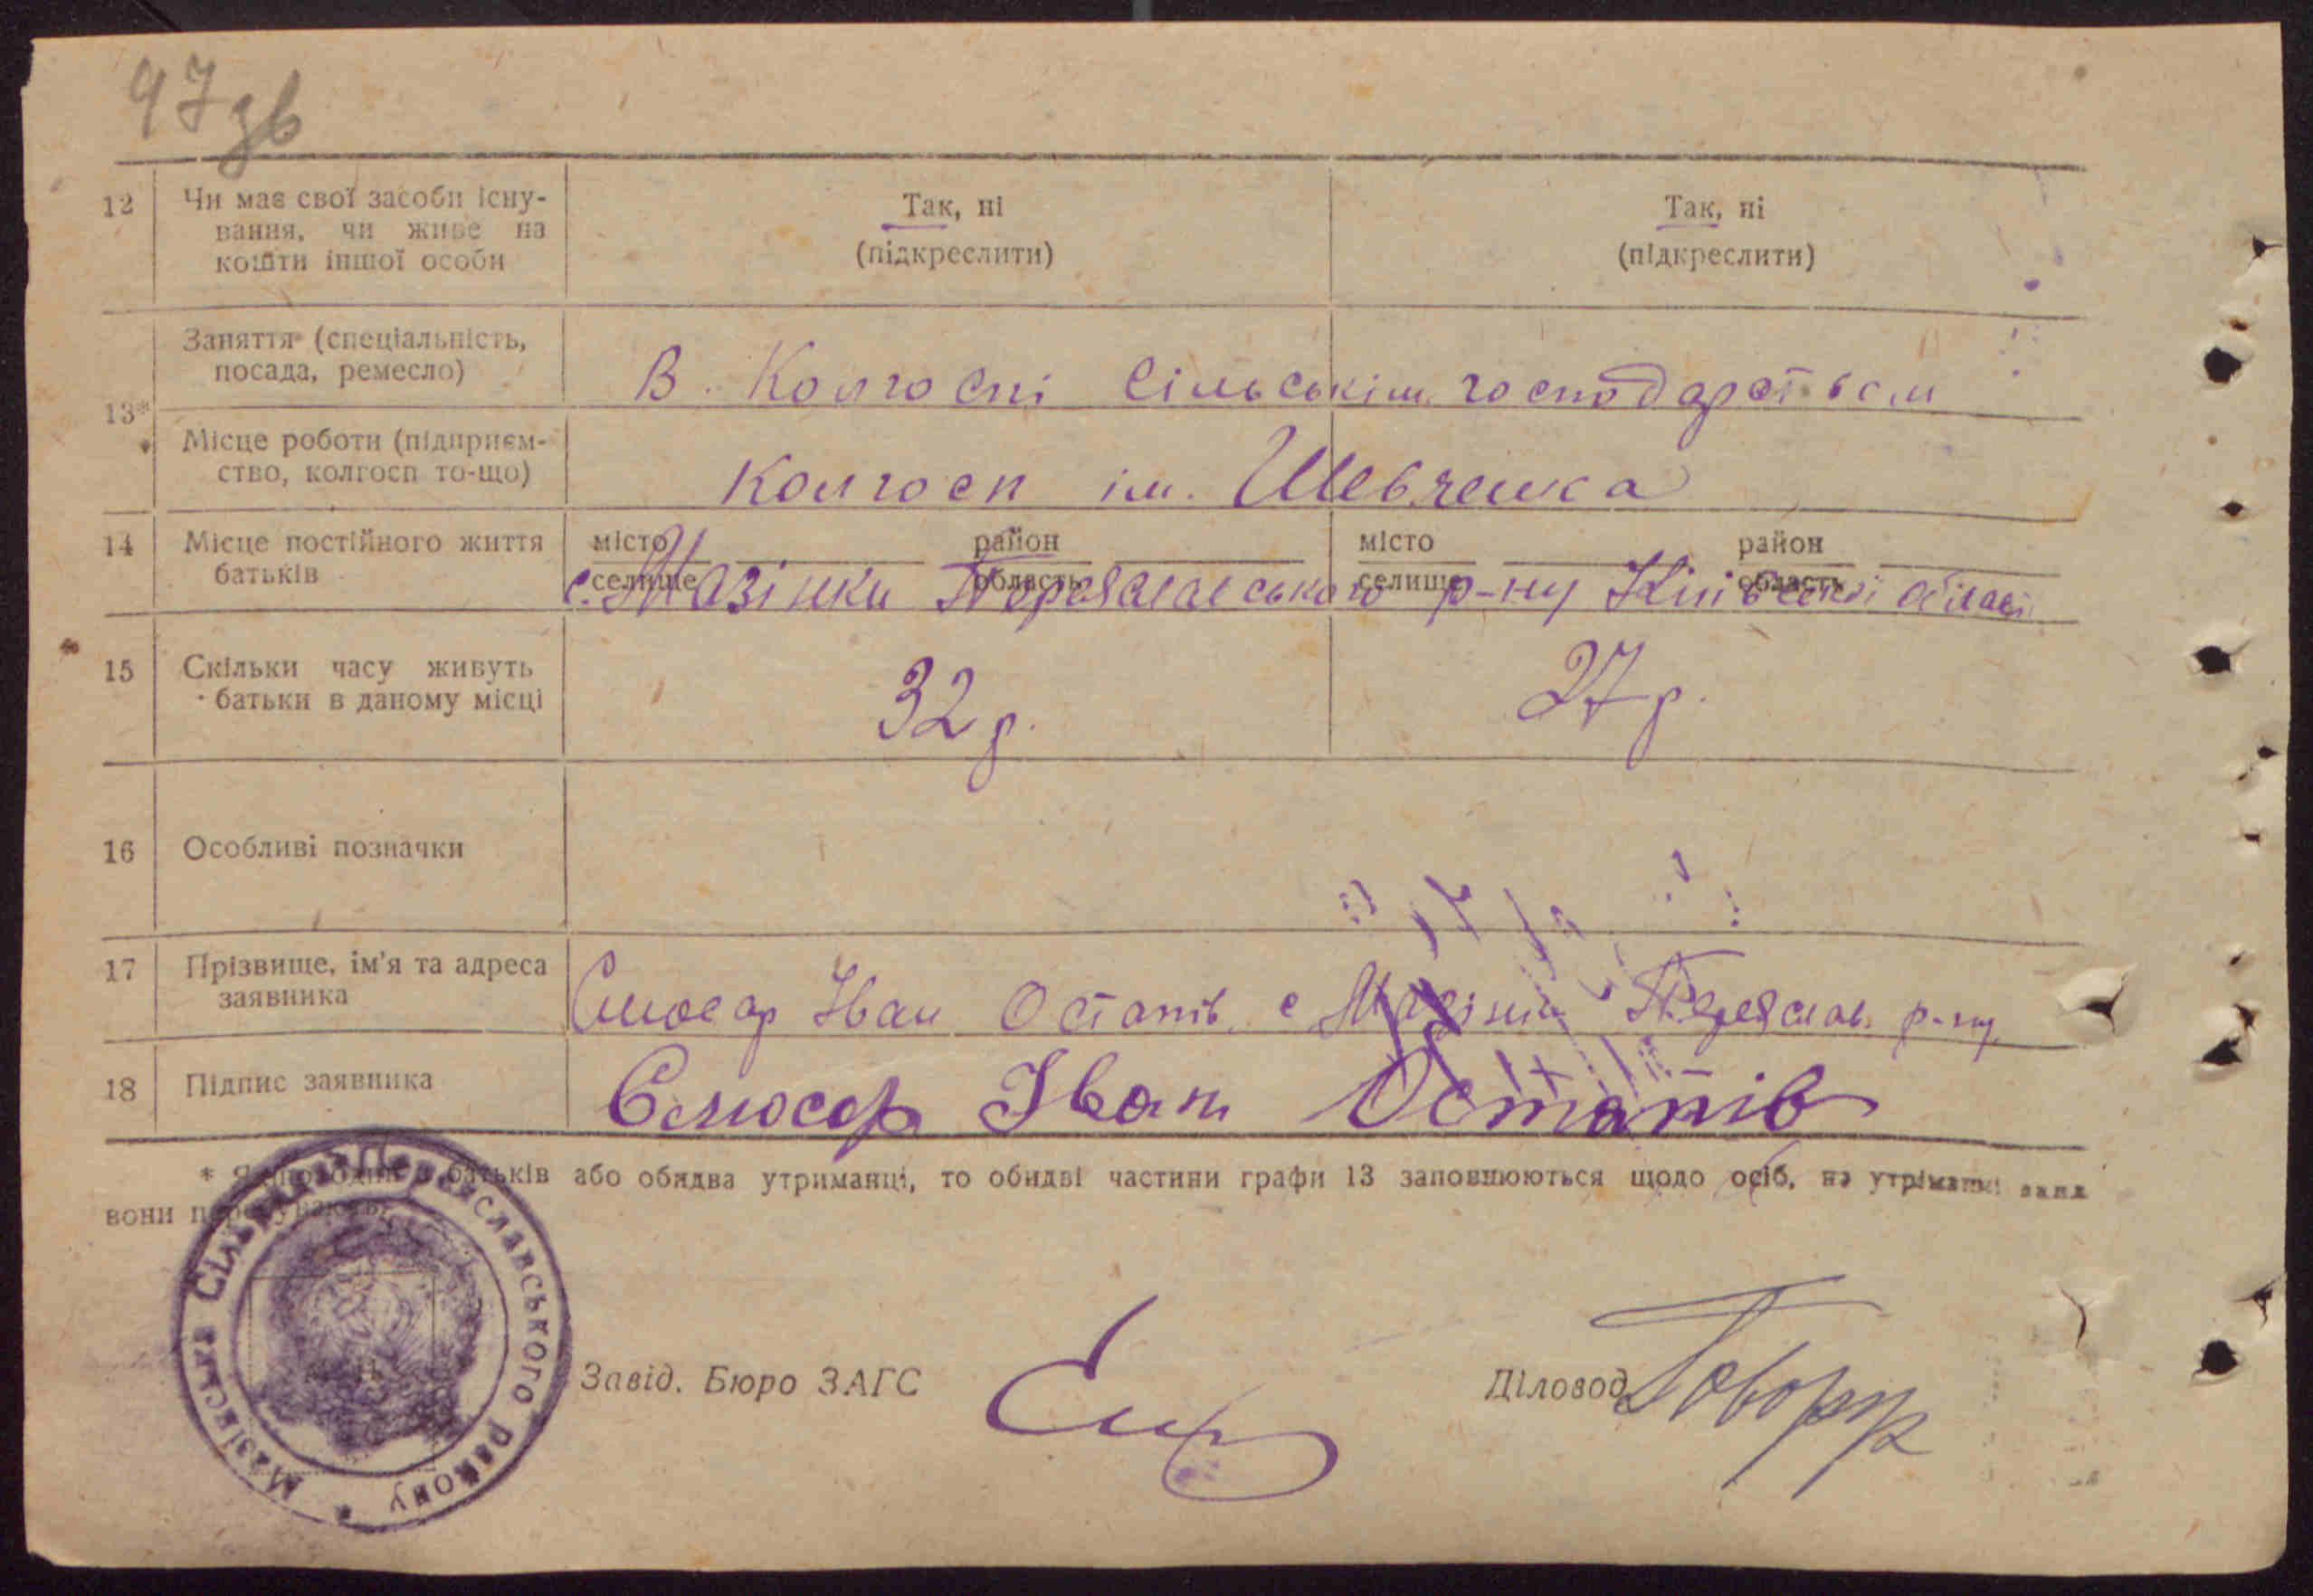 97 зв
12 Чи має свої засоби існу- Так, ні Так, ні
вання, чи живе на (підкреслити) (підкреслити)
кошти іншої особи
Заняття (спеціальність,
посада, ремесло) В. Колгоспі сільськім господарством
13*
Місце роботи (підприєм-
ство, колгосп то-що) колгосп ім. Шевченка
14 Місце постійного життя місто район місто район
батьків селище область селище область
с. Мазінки Переяславського р-ну Київської області
15 Скільки часу живуть
батьки в даному місці 32 р. 27 р.
16 Особливі позначки
17 Прізвище, ім'я та адреса
заявника Слюсар Іван Остапів с Мазінки Переяслав. р-ну
18 Підпис заявника Слюсар Іван Остапів
* Якщо один з батьків або обидва утриманці, то обидві частини графи 13 заповнюються щодо осіб, на утриманні яких
вони перебувають.
Мазінська Сільська Рада Переяславського району *
Завід. Бюро ЗАГС
Діловод